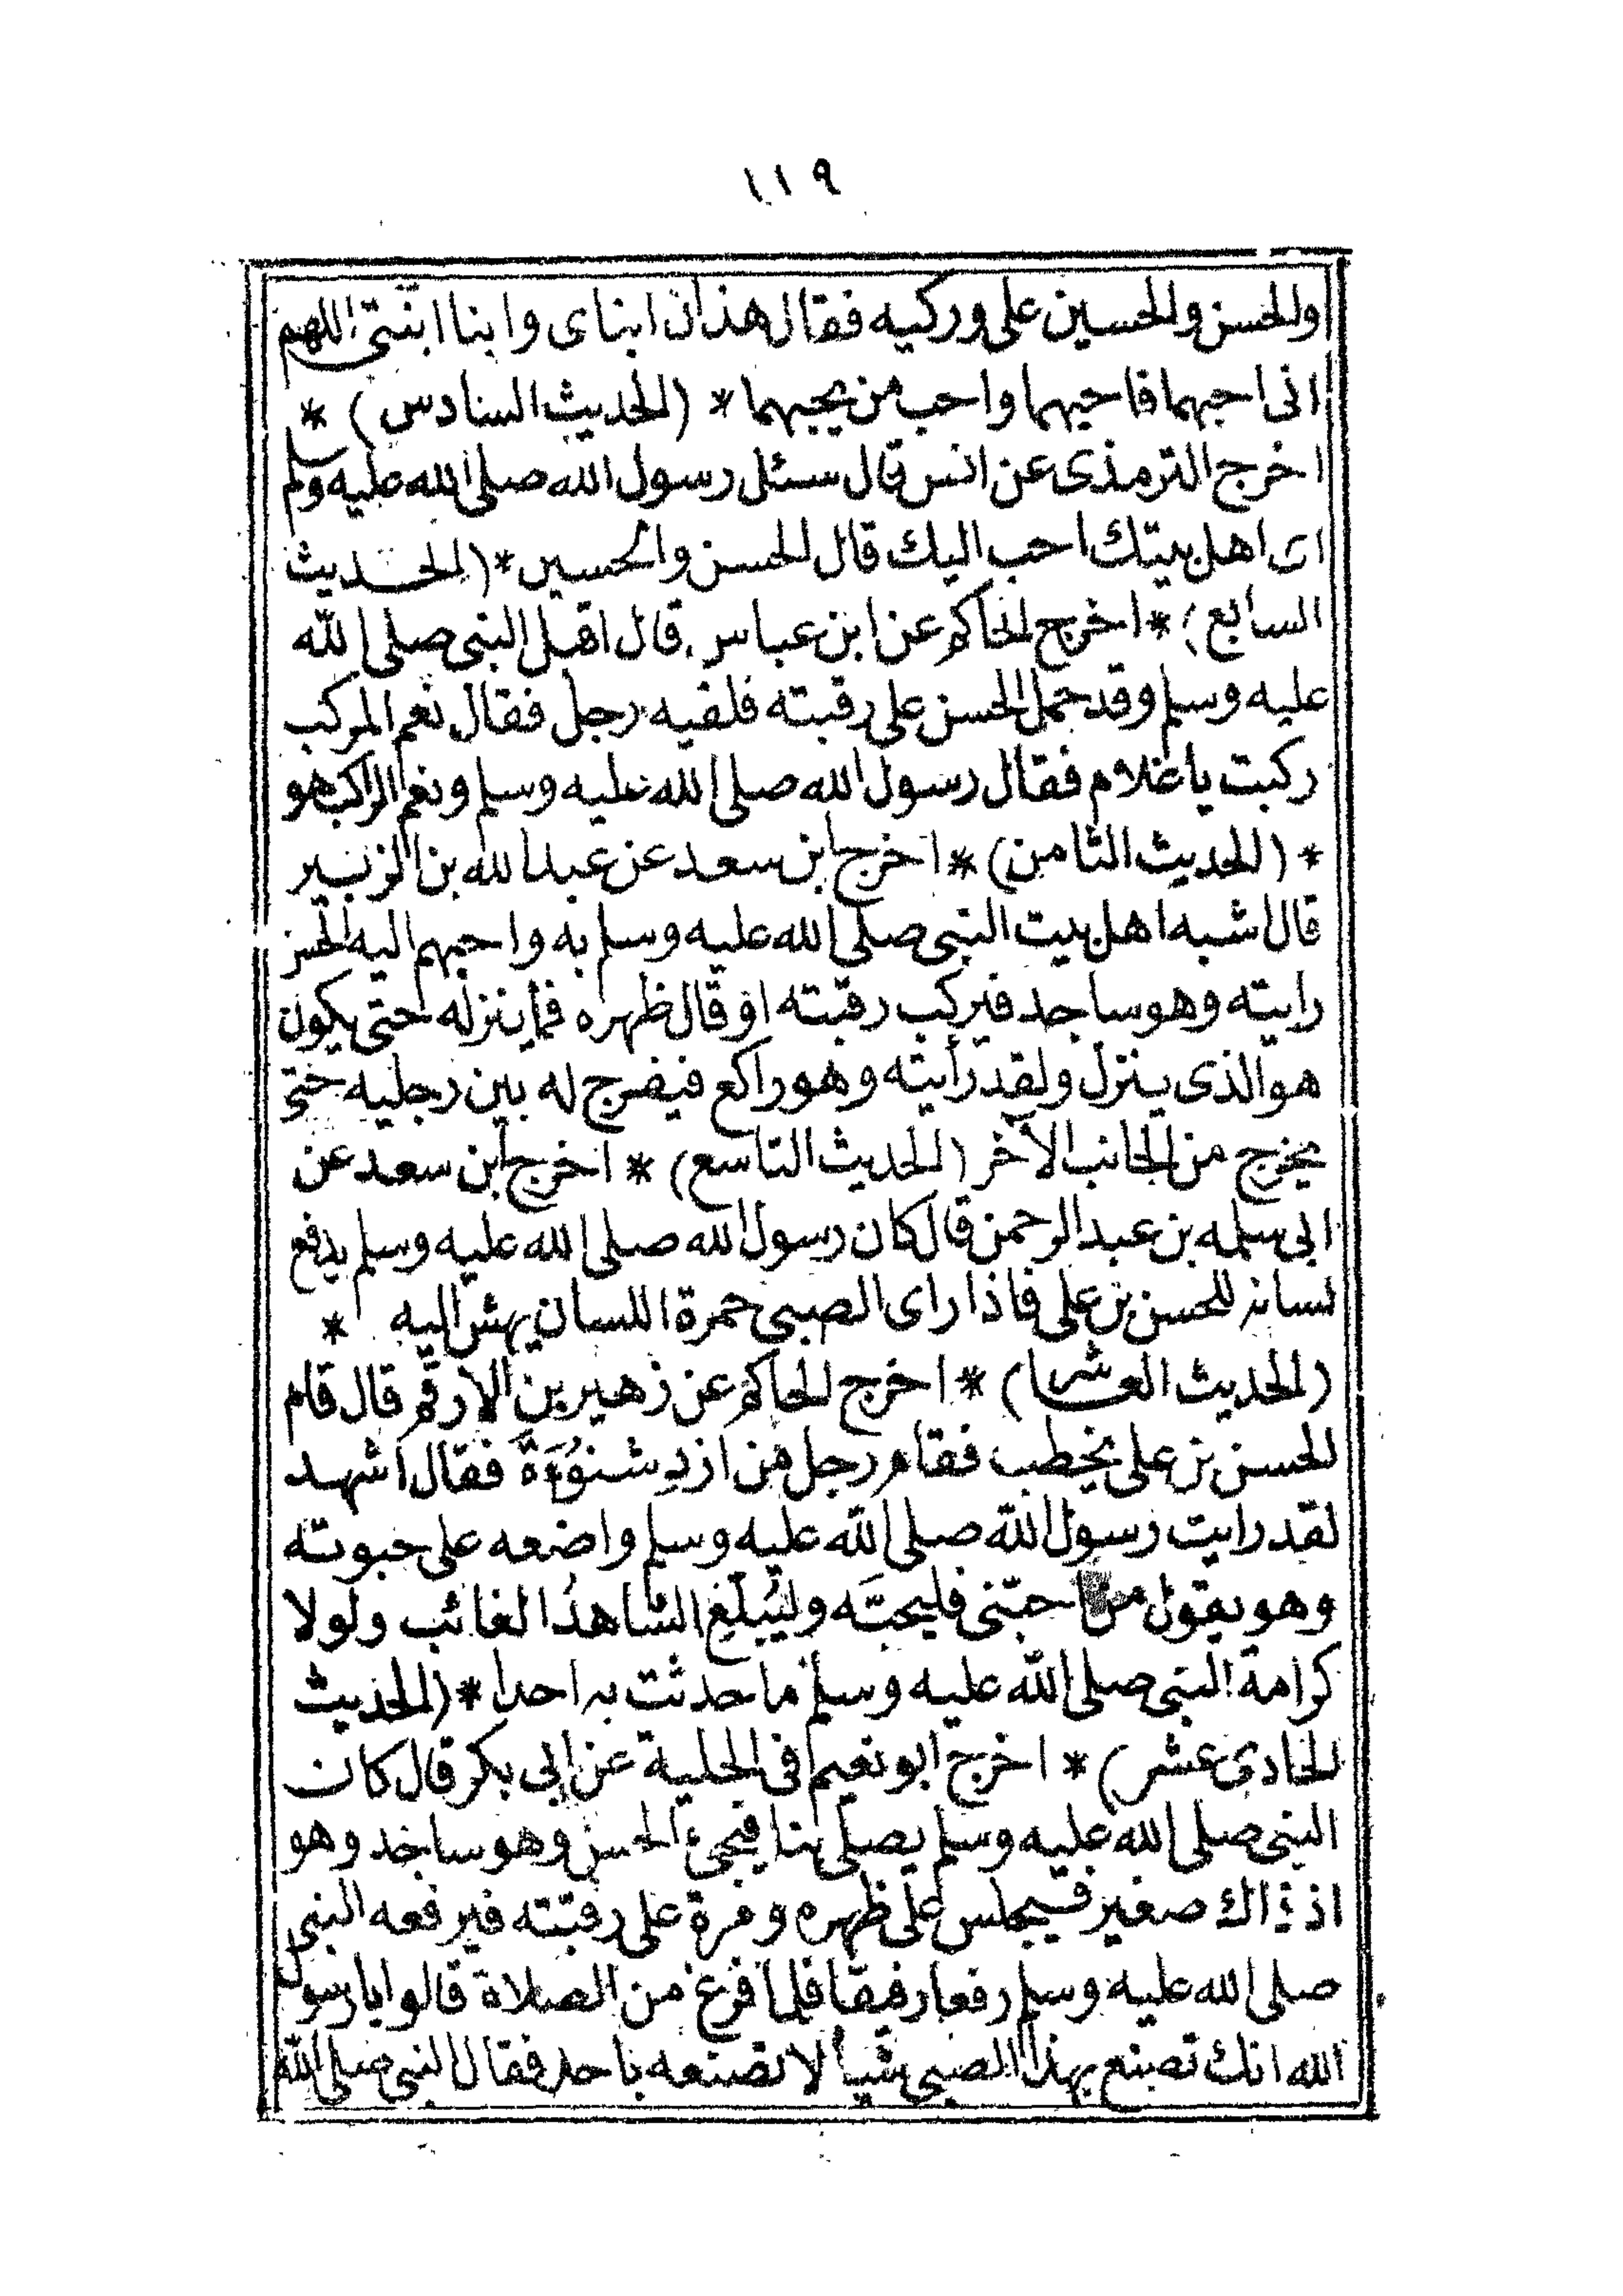 ١١٩
والحسن والحسين على وركيه فقال هذان ابناى وابنا ابنتى اللهم
انى احبهما فاحبهما واحب من يحبهما * (الحديث السادس) *
اخرج الترمذى عن انس قال سئل رسول الله صلى الله عليه وسلم
اى اهل بيتك احب اليك قال الحسن والحسين * (الحديث
السابع) * اخرج الحاكم عن ابن عباس قال اقبل النبى صلى الله
عليه وسلم وقد حمل الحسن على رقبته فلقيه رجل فقال نعم المركب
ركبت يا غلام فقال رسول الله صلى الله عليه وسلم ونعم الراكب هو
* (الحديث الثامن) * اخرج ابن سعد عن عبد الله بن الزبير
قال اشبه اهل بيت النبى صلى الله عليه وسلم به واحبهم اليه الحسن
رايته وهو ساجد فيركب رقبته او قال ظهره فما ينزله حتى يكون
هو الذى ينزل ولقد رأيته وهو راكع فيفرج له بين رجليه حتى
يخرج من الجانب الآخر (الحديث التاسع) * اخرج ابن سعد عن
ابى سلمه بن عبد الرحمن قال كان رسول الله صلى الله عليه وسلم يدفع
لسانه للحسن بن على فاذا راى الصبى حمرة اللسان يهش اليه *
(الحديث العاشر) * اخرج الحاكم عن زهير بن الارقم قال قام
الحسن بن على يخطب فقام رجل من ازدِ شنوُءَةَ فقال اشهد
لقد رايت رسول الله صلى الله عليه وسلم واضعه على حبوته
وهو يقول من احبّنى فليحبَّه وليُبلّغ الشاهدُ الغائب ولولا
كرامة النبى صلى الله عليه وسلم ما حدثت به احدا * (الحديث
الحادى عشر) * اخرج ابو نعيم فى الحلية عن ابى بكر قال كان
النبى صلى الله عليه وسلم يصلى بنا فيجئ الحسن وهو ساجد وهو
اذ ذاك صغير فيجلس على ظهره ومرة على رقبته فيرفعه النبى
صلى الله عليه وسلم رفعا رفيقا فلما فرغ من الصلاة قالوا يا رسول
الله انك تصنع بهذا الصبى شيأ لا تصنعه باحد فقال النبى صلى الله